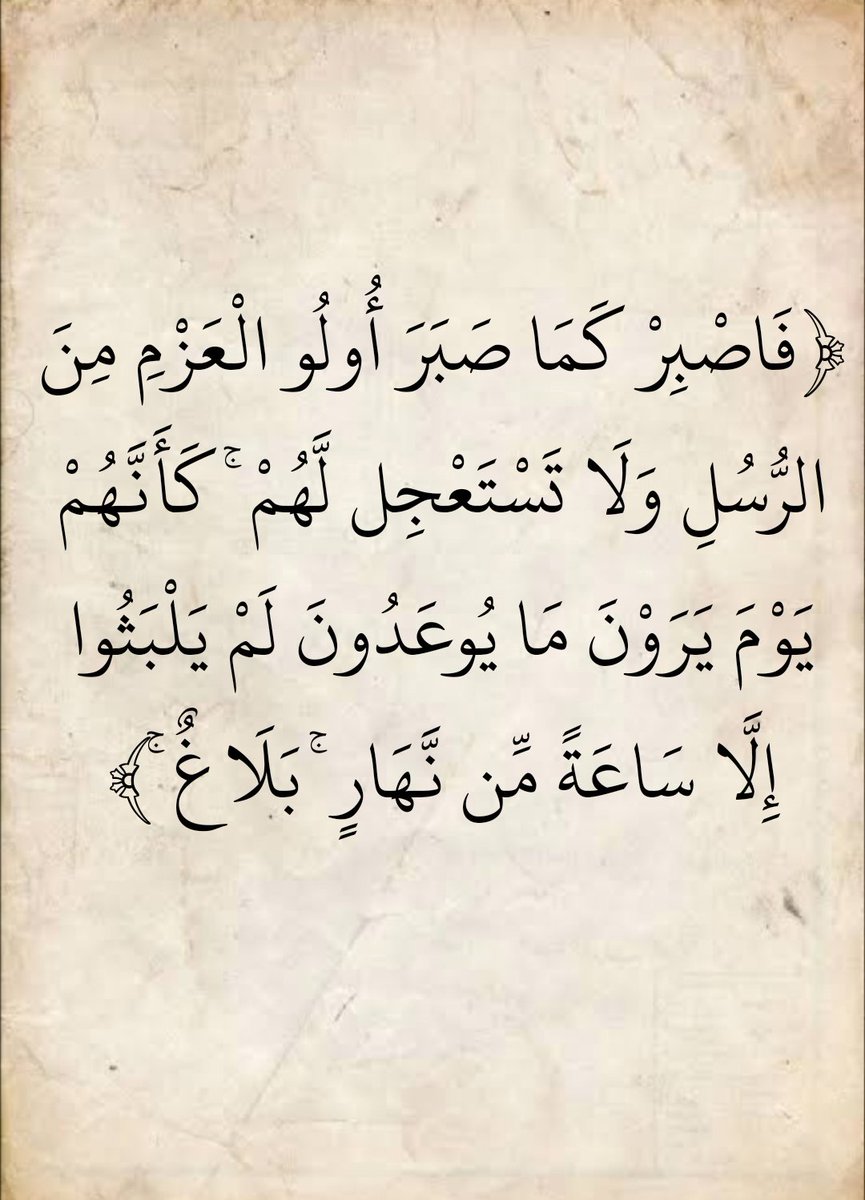 ﴿فَاصْبِرْ كَمَا صَبَرَ أُولُو الْعَزْمِ مِنَ
الرُّسُلِ وَلَا تَسْتَعْجِل لَّهُمْ ۚ كَأَنَّهُمْ
يَوْمَ يَرَوْنَ مَا يُوعَدُونَ لَمْ يَلْبَثُوا
إِلَّا سَاعَةً مِّن نَّهَارٍ ۚ بَلَاغٌ ۚ﴾